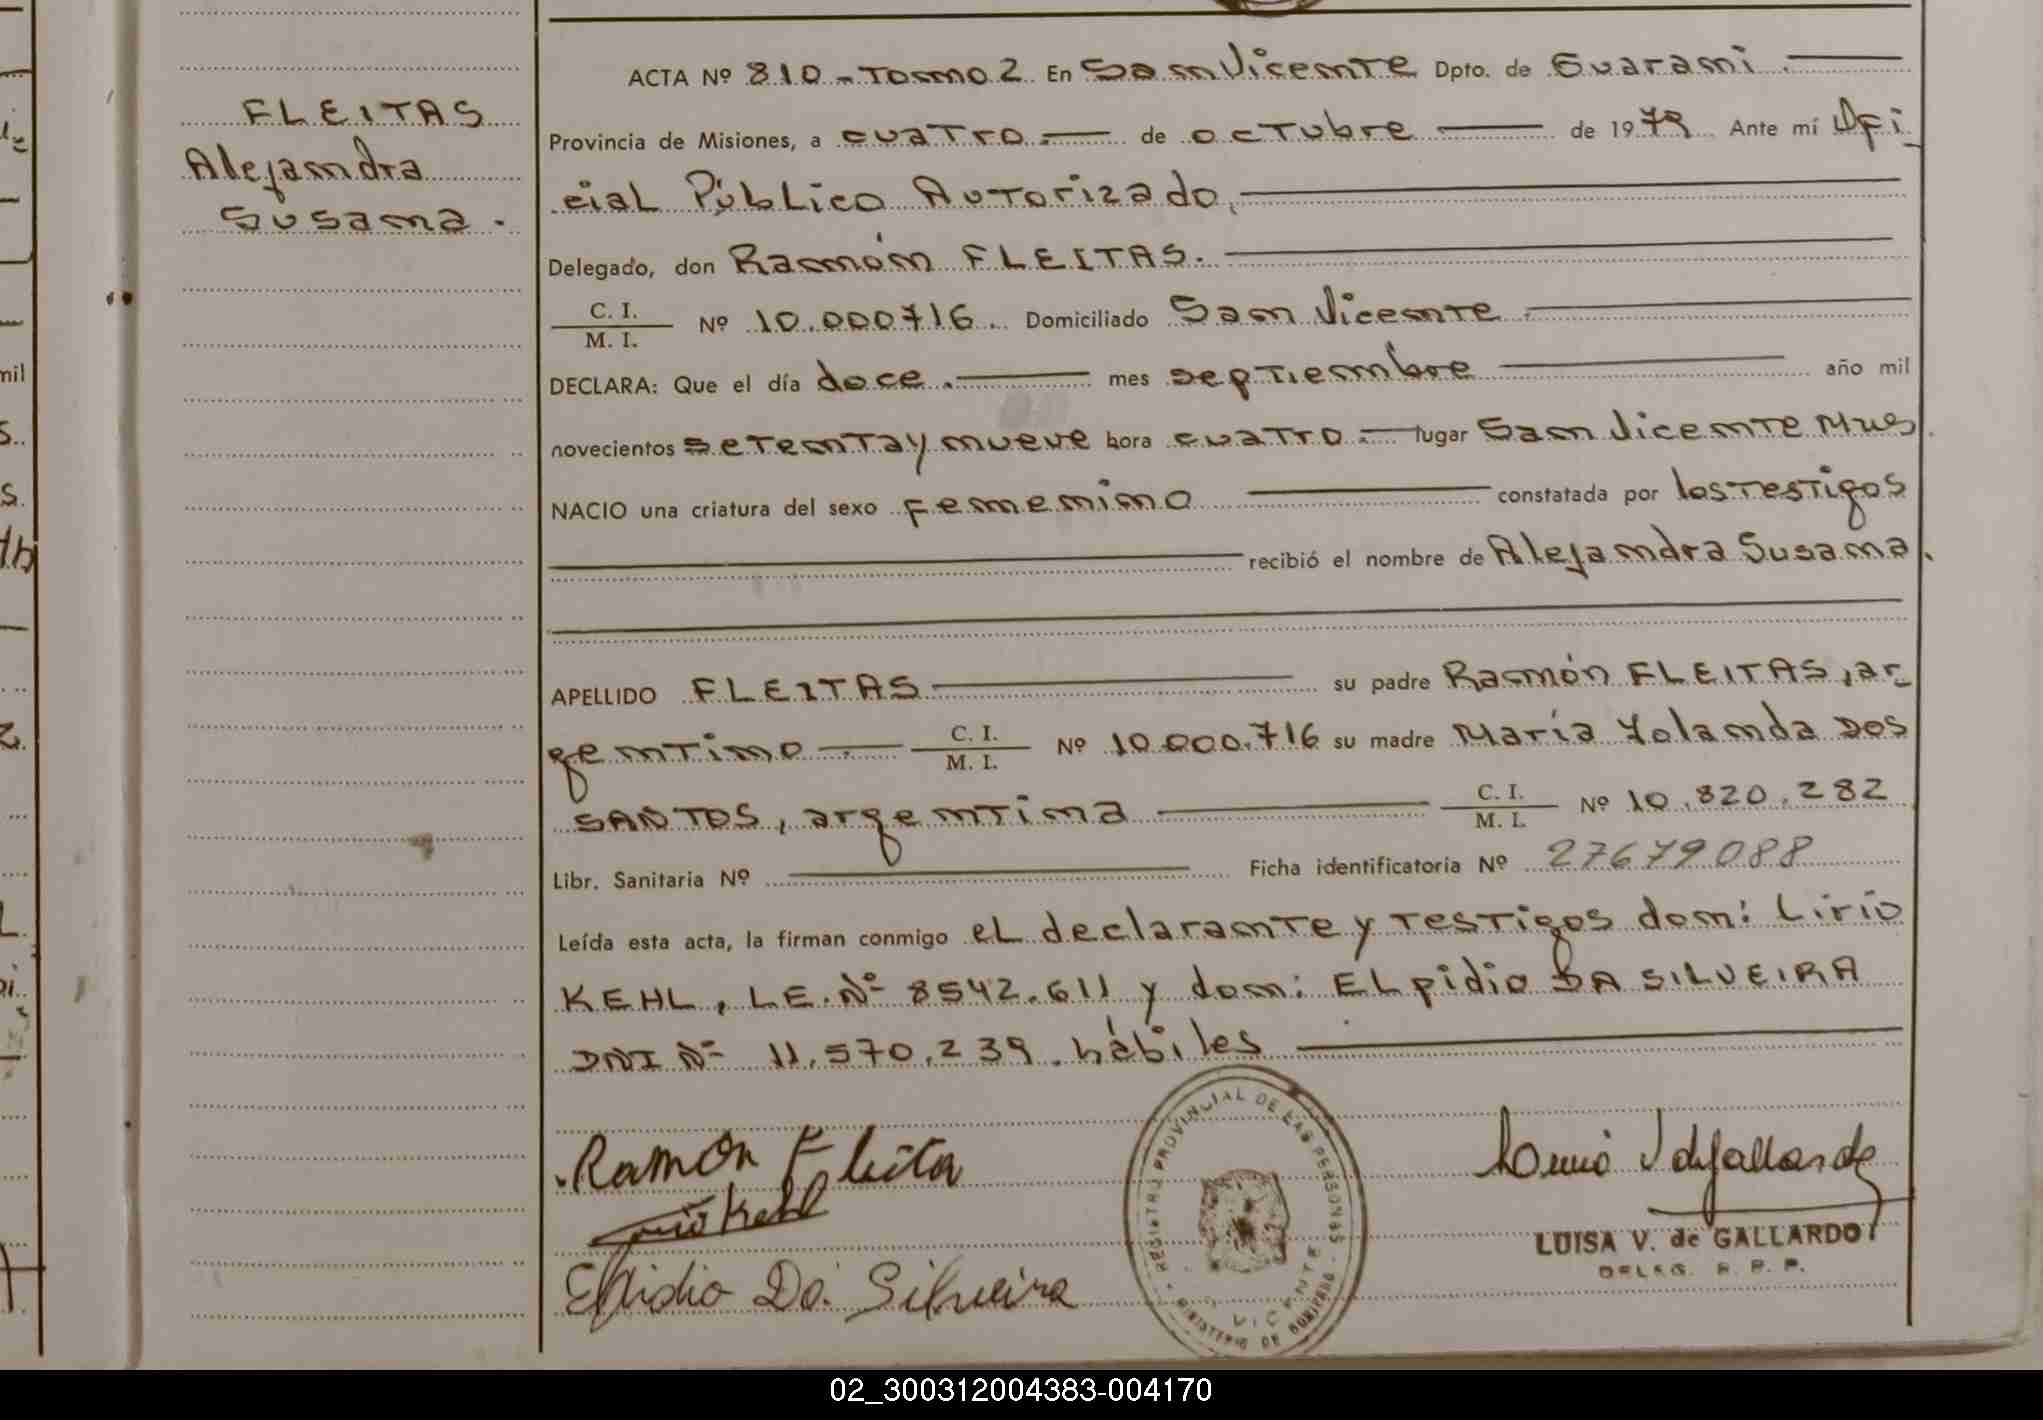 FLEITAS
Alejandra
Susana.
ACTA Nº 810 - Tomo 2 En San Vicente Dpto. de Guaraní.
Provincia de Misiones, a cuatro.- de octubre de 1979 Ante mí Ofi
cial Público Autorizado,
Delegado, don Ramón FLEITAS.
C. I.
M. I. Nº 10.000716. Domiciliado San Vicente
DECLARA: Que el día doce. mes septiembre año mil
novecientos setenta y nueve hora cuatro.- lugar San Vicente Mnes.
NACIO una criatura del sexo femenino constatada por los testigos
recibió el nombre de Alejandra Susana.
APELLIDO FLEITAS su padre Ramón FLEITAS, ar-
gentino C. I.
M. I. Nº 10.000.716 su madre María Yolanda DOS
SANTOS, argentina C. I.
M. I. Nº 10.820.282
Libr. Sanitaria Nº Ficha identificatoria Nº 27679088
Leída esta acta, la firman conmigo el declarante y testigos don: Lirio
KEHL, L.E. Nº 8542.611 y don: ELpidio DA SILVEIRA
DNI Nº 11.570.239. hábiles
Ramón Fleita
Kehl
Elpidio Da Silveira
REGISTRO PROVINCIAL DE LAS PERSONAS
MINISTERIO DE GOBIERNO
VICENTE
LUISA V. de GALLARDO
DELEG. R. P. P.
02_300312004383-004170